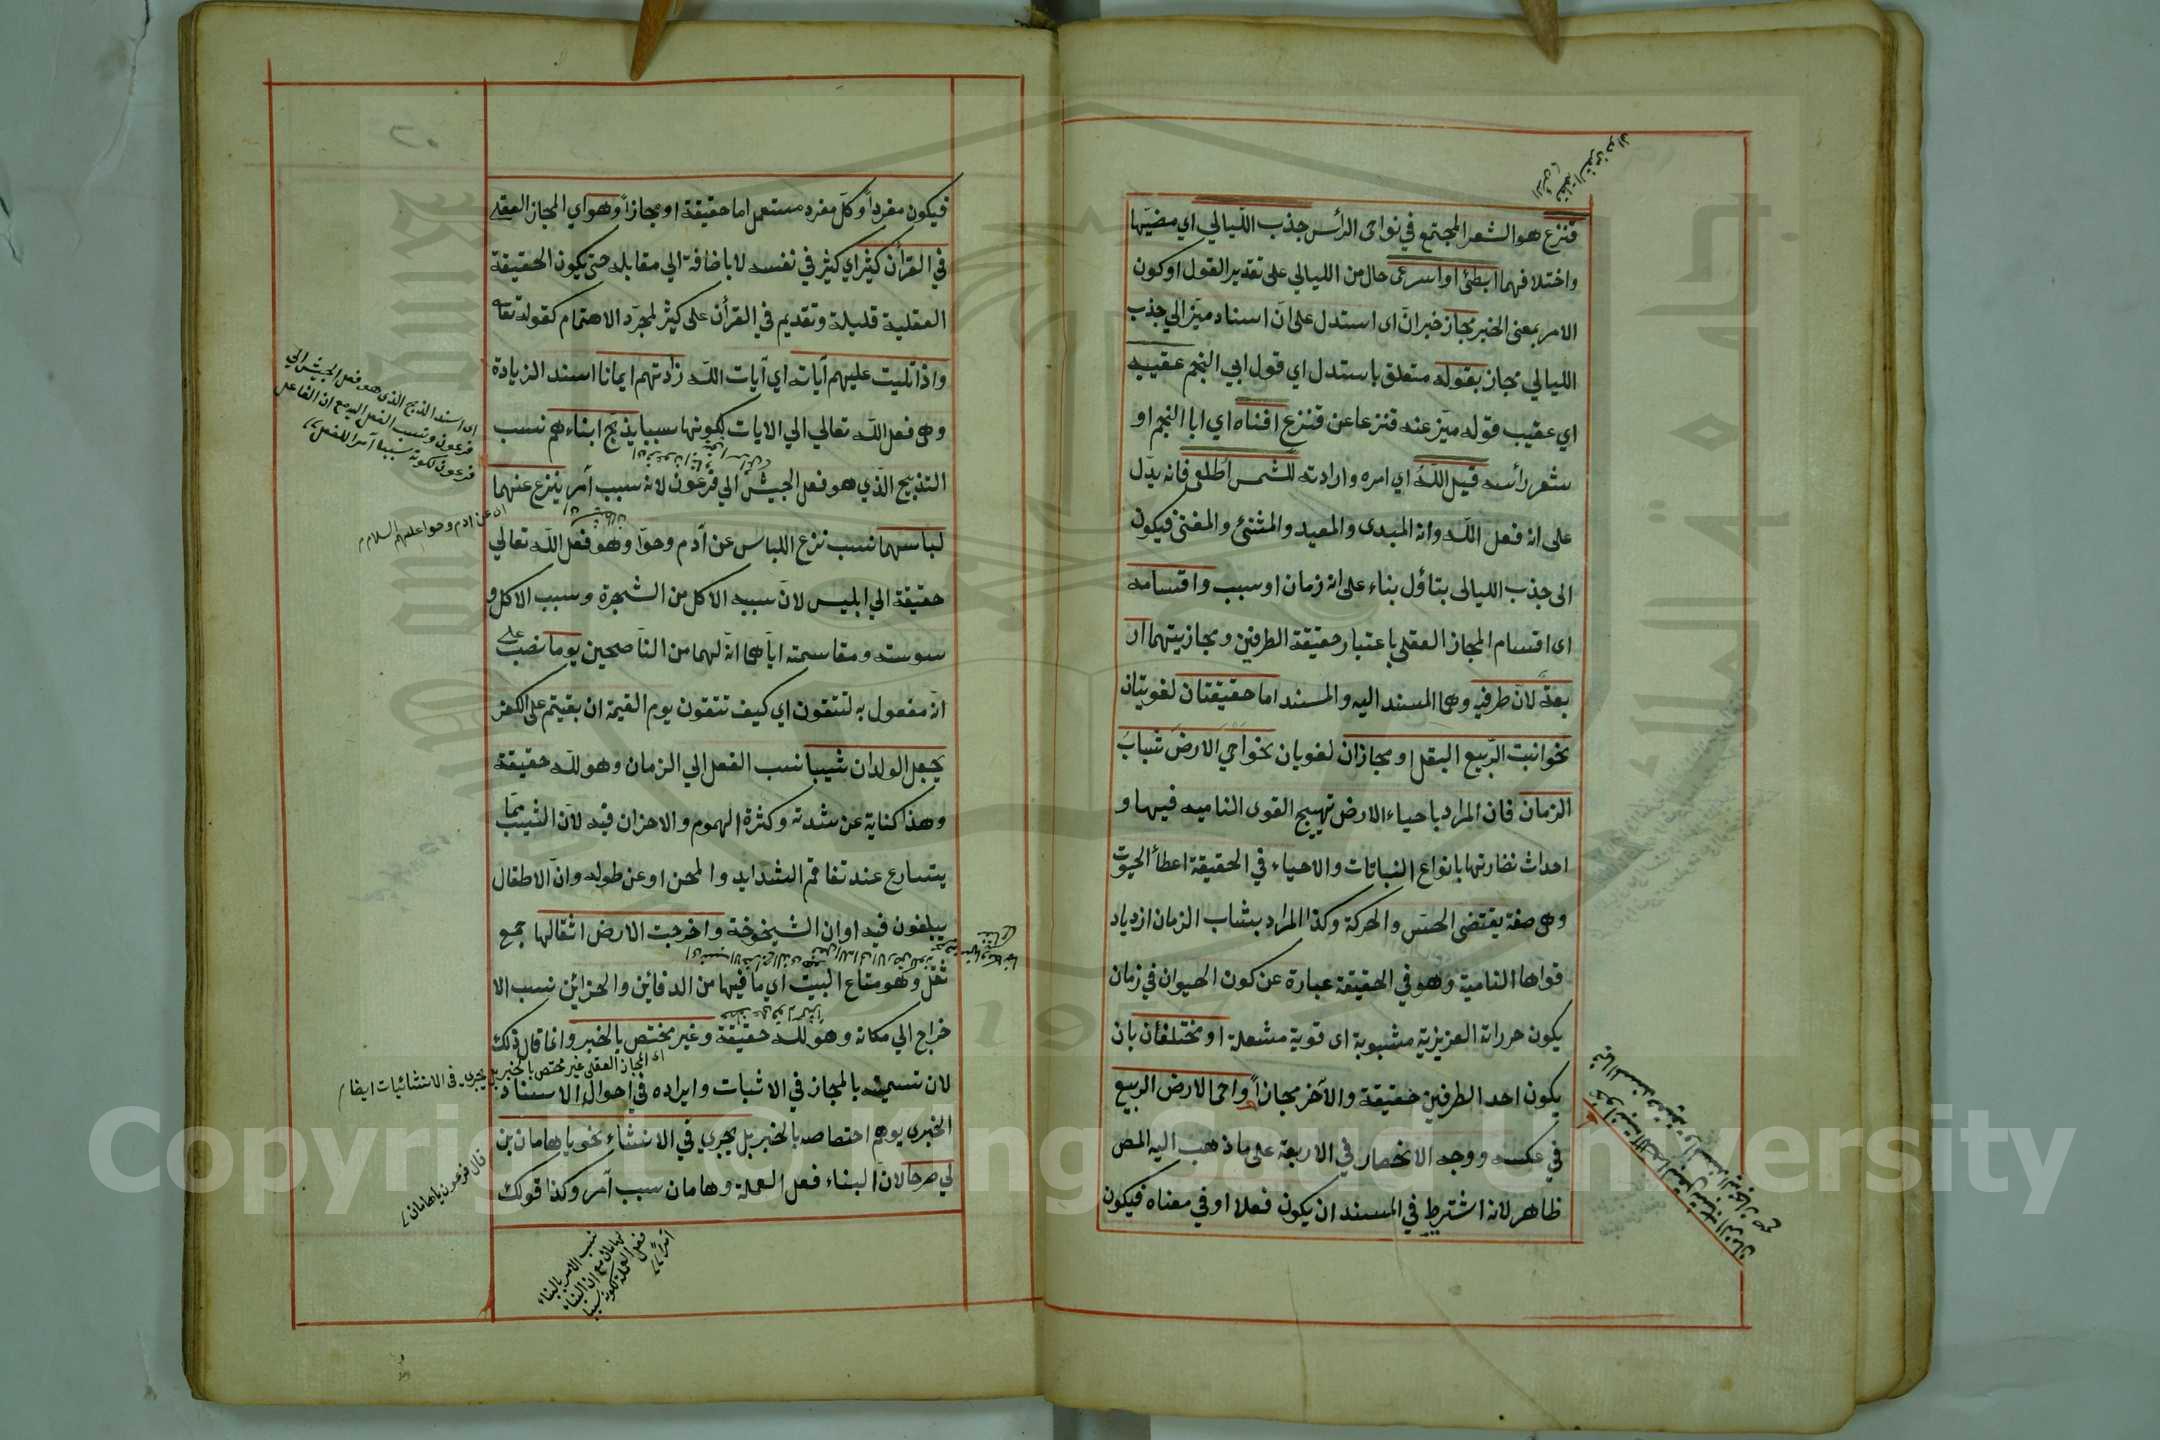 قنزع هو الشعر المجتمع في نواحى الرأس جذب الليالي اي مضيّها
واختلافهما ابطئ او اسرعى حال من الليالي على تقدير القول او كون
الامر بمعنى الخبر مجاز خبر انّ اى استدل على انّ اسناد ميّز الي جذب
الليالي مجاز بقوله متعلق باستدل اي قول ابي النجم عقيبه
اي عقيب قوله ميّز عنه قنزعا عن قنزع افناه اي ابا النجم او
شعر رأسه قيل اللّه اي امره وارادته للشمس اطلعى فانه يدّل
على انه فعل اللّه وانه المبدى والمعيد والمنشئ والمفنى فيكون
الى جذب الليالى بتاؤل بناء على انه زمان او سبب واقسامه
اى اقسام المجاز العقلى باعتبار حقيقة الطرفين ومجازيتهما ار
بعة لانّ طرفيه وهما المسند اليه والمسند اما حقيقتان لغويتان
نحو انبت الرّبيع البقل او مجازان لغويان نحو احي الارضَ شبابَ
الزمان فان المراد باحياء الارض تهييج القوى الناميه فيها و
احداث نضارتها بانواع النباتات والاحياء في الحقيقة اعطأ الحيوت
وهى صفة يقتضى الحسّ والحركة وكذا المراد بشاب الزمان ازدياد
قواها النامية وهو في الحقيقة عبارة عن كون الحيوان في زمان
يكون حررانة العزيزية مشبوبة اى قوية مشعلة او مختلفان بان
يكون احد الطرفين حقيقة والآخر مجازاً واحيا الارض الربيع
في عكسه ووجه الانحصار في الاربعة على ما ذهب اليه المص
ظاهر لانه اشترط في المسند ان يكون فعلا او في معناه فيكون
فيكون مفرداً وكل مفرد مستعمل اما حقيقة او مجازاً وهو اي المجاز العقلى
في القرأن كثير اي كثير في نفسه لا باضافة الي مقابله حتى يكون الحقيقة
العقلية قليلة وتقديم في القرأن على كثير لمجرّد الاهتمام كقوله تعا
واذا تليت عليهم آياته اي آيات اللّه زادتهم ايمانا اسند الزيادة
وهى فعل اللّه تعالي الي الايات لكونها سببا يذبّح ابناءهم نسب
التذبيح الّذي هو فعل الجيش الي فرعون لانه سبب آمر ينزع عنهما
لباسهما نسب نزع اللباس عن آدم وحوّا وهو فعل اللّه تعالي
حقيقة الي ابليس لانّ سببه الاكل من الشجرة وسبب الاكل و
سوسته ومقاسمته اياهما انّه لهما من الناصحين يوما نصب على
انّه مفعول به لتتقون اي كيف تتقون يوم القيمة ان بقيتم على الكفر
يجعل الولدان شيبا نسب الفعل الي الزمان وهو للّه حقيقة
وهذا كناية عن شدته وكثرة الهموم والاحزان فيه لانّ الشيب ممّا
يتسارع عند تفاقم الشدايد والمحن او عن طوله وانّ الاطفال
يبلغون فيه اوان الشيخوخة واخرجت الارض اثقالها جمع
ثقل وهو متاع البيت اي ما فيها من الدفائن والخزائن نسب الا
خراج الي مكانه وهو للّه حقيقة وغير مختص بالخبر وانما قال ذلك
لان تسميته بالمجاز في الاثبات وايراده في احوال الاسناد
الخبرى يوهم اختصاصه بالخبر بل يجري في الانشاء نحو يا هامان بن
لي صرحا لانّ البناء فعل العملة وهامان سبب آمر وكذا قولك
اى اسند الذبح الّذى هو فعل الجيش الي
فرعون ونسب الفعل اليه مع ان الفاعل
فرعون لكونه سببا آمرا للفعل
اى عن ادم وحوا عليهم السلام م
اى المجاز العقلى غير مختص بالخبر بل يجرى فى الانشائيات ايضا م
قال فرعون يا هامان
نسب الامر بالبناء
لهامان مع ان البناء
فعل العملة لكونه سببا
آمراً
Copyright © King Saud University